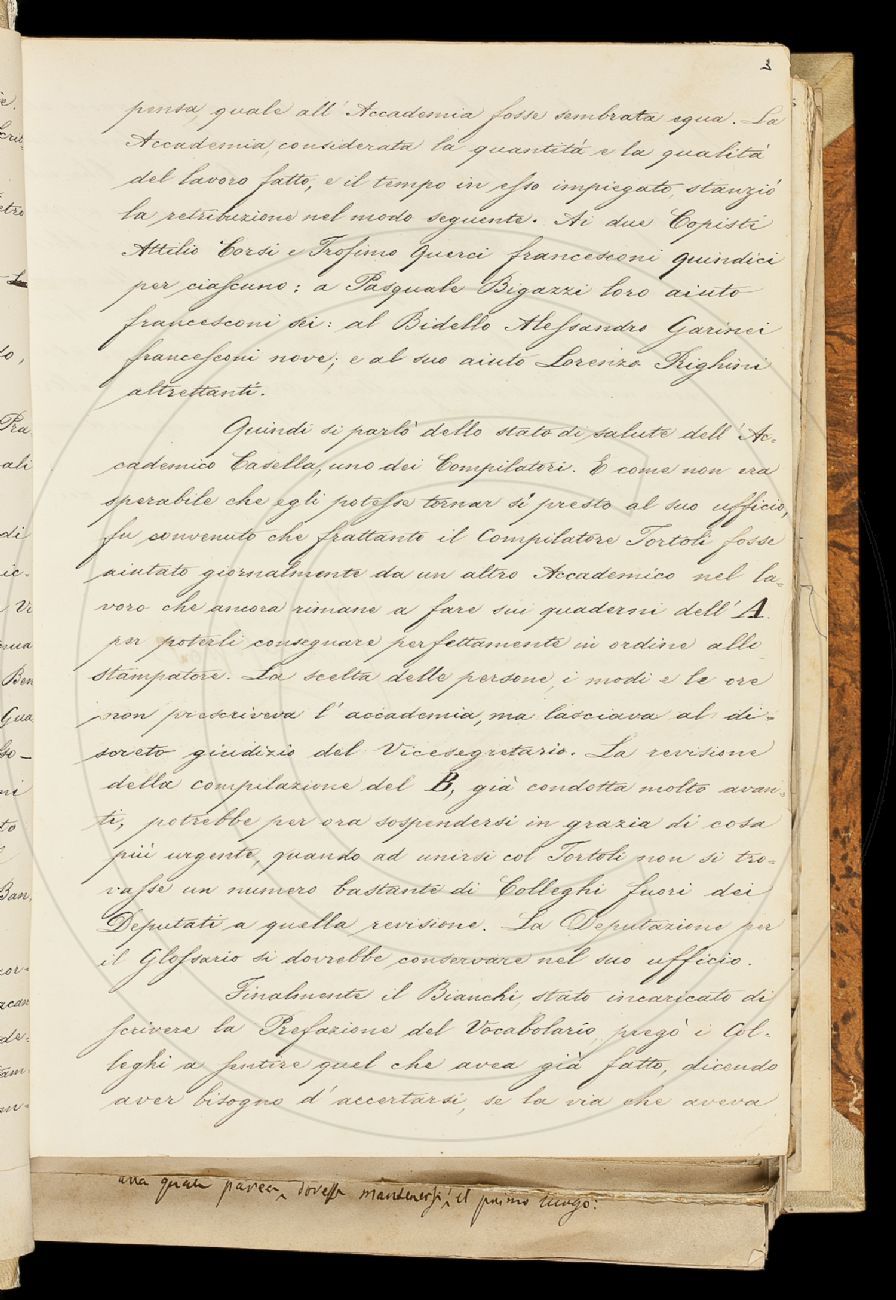 3
pensa, quale all' Accademia fosse sembrata equa. La
Accademia, considerata la quantità e la qualità
del lavoro fatto, e il tempo in esso impiegato, stanziò
la retribuzione nel modo seguente. Ai due Copisti
Attilio Corsi e Trofimo Querci francesconi quindici
per ciascuno: a Pasquale Bigazzi loro aiuto
francesconi sei: al Bidello Alessandro Garinei
francesconi nove; e al suo aiuto Lorenzo Righini
altrettanti.
Quindi si parlò dello stato di salute dell' Ac-
cademico Casella, uno dei Compilatori. E come non era
sperabile che egli potesse tornar sì presto al suo ufficio,
fu convenuto che frattanto il Compilatore Tortoli fosse
aiutato giornalmente da un altro Accademico nel la-
voro che ancora rimane a fare sui quaderni dell' A.
per poterli consegnare perfettamente in ordine allo
stampatore. La scelta delle persone, i modi e le ore
non prescriveva l' accademia, ma lasciava al di-
screto giudizio del Vicesegretario. La revisione
della compilazione del B, già condotta molto avan-
ti, potrebbe per ora sospendersi in grazia di cosa
più urgente, quando ad unirsi col Tortoli non si tro-
vasse un numero bastante di Colleghi fuori dei
Deputati a quella revisione. La Deputazione per
il Glossario si dovrebbe conservare nel suo ufficio.
Finalmente il Bianchi, stato incaricato di
scrivere la Prefazione del Vocabolario, pregò i Col-
leghi a sentire quel che avea già fatto, dicendo
aver bisogno d' accertarsi, se la via che aveva
alla quale parea dovesse mantenersi il primo luogo: